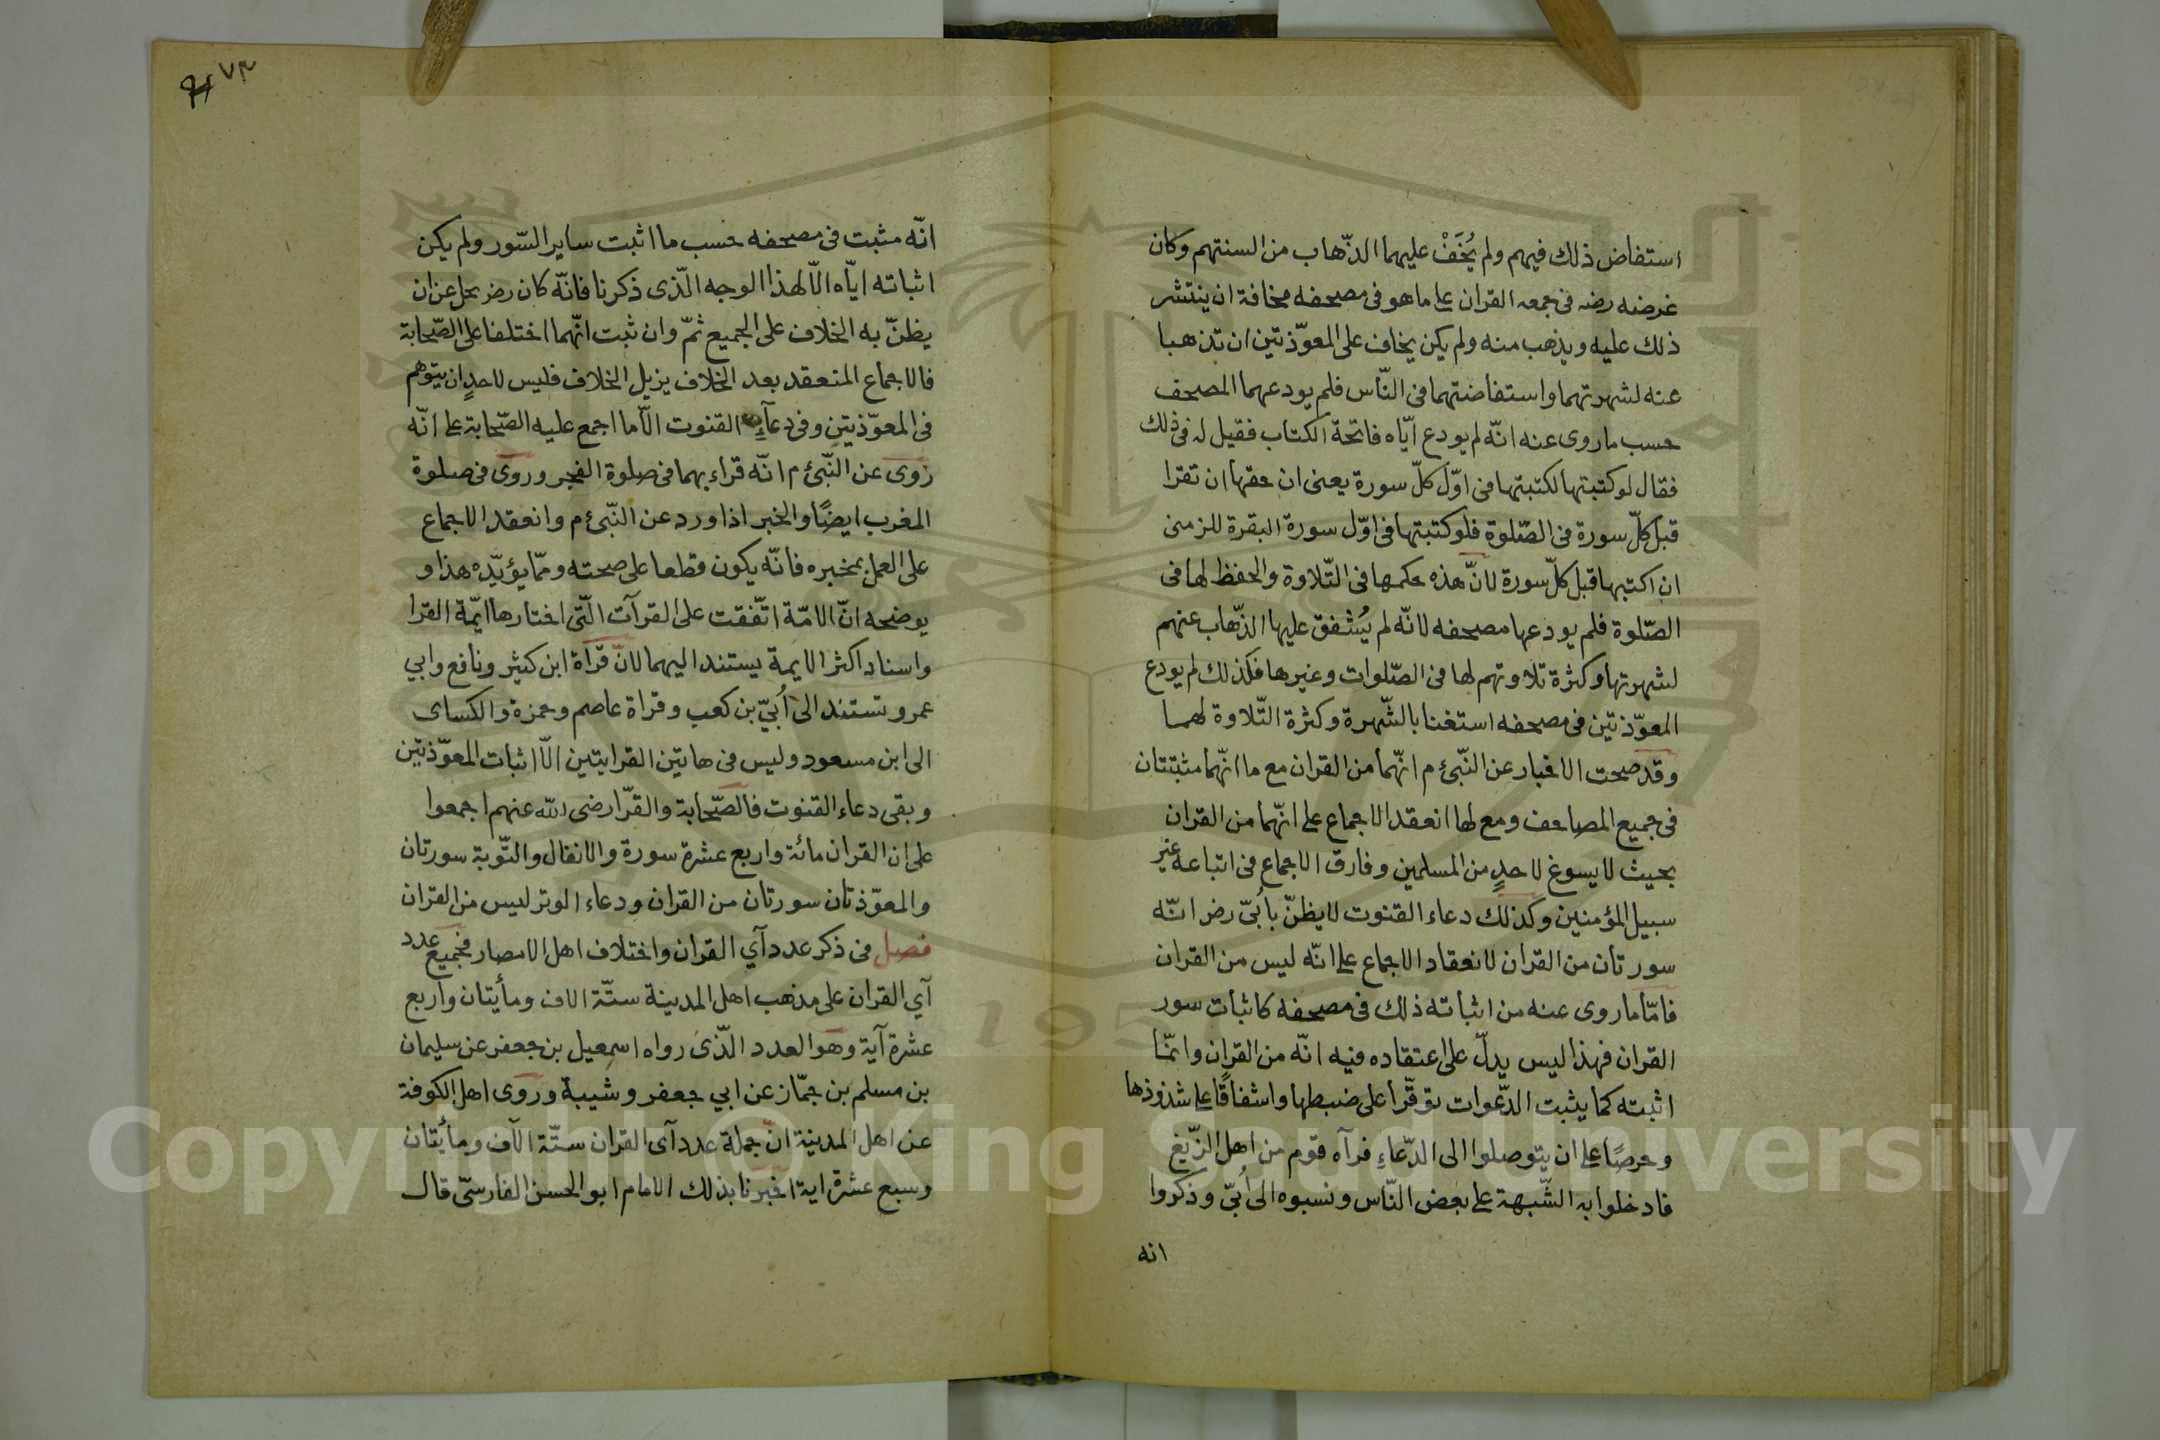 استفاض ذلك فيهم ولم يُخَفْ عليهما الذّهاب من السنتهم وكان
غرضه رضه فى جمعه القران على ما هو فى مصحفه مخافة ان ينتشر
ذلك عليه ويذهب منه ولم يكن يخاف على المعوّذتين ان تذهبا
عنه لشهرتهما واستفاضتهما فى النّاس فلم يودعهما المصحف
حسب ما روى عنه انّه لم يودع ايّاه فاتحة الكتاب فقيل له فى ذلك
فقال لو كتبتها لكتبتها فى اوّل كلّ سورة يعنى ان حقها ان تقرا
قبل كلّ سورة فى الصّلوة فلو كتبتها فى اوّل سورة البقرة للزمنى
ان اكتبها قبل كلّ سورة لانّ هذه حكمها فى التّلاوة والحفظ لها فى
الصّلوة فلم يودعها مصحفه لانّه لم يُشْفق عليها الذّهاب عنهم
لشهرتها وكثرة تلاوتهم لها فى الصّلوات وغيرها فكذلك لم يودع
المعوّذتين فى مصحفه استغنا بالشّهرة وكثرة التّلاوة لهما
وقد صحت الاخبار عن النّبى ءم انّهما من القران مع ما انّهما مثبتتان
فى جميع المصاحف ومع لها انعقد الاجماع على انّهما من القران
بحيث لا يسوغ لاحدٍ من المسلمين وفارق الاجماع فى اتباعه غير
سبيل المؤمنين وكذلك دعاء القنوت لا يظنّ باُبىّ رضر انّه
سورتان من القران لانعقاد الاجماع على انّه ليس من القران
فامّا ما روى عنه من اثباته ذلك فى مصحفه كاثبات سور
القران فهذا ليس يدلّ على اعتقاده فيه انّه من القران وانّما
اثبته كما يثبت الدّعوات توقّرا على ضبطها واشفاقًا على شذوذها
وحرصًا على ان يتوصلوا الى الدّعاءِ فرآه قوم من اهل الزّيغ
فادخلوا به الشّبهة على بعض النّاس ونسبوه الى اُبىّ وذكروا
انه
٧٣
انّه مثبت فى مصحفه حسب ما اثبت ساير السّور ولم يكن
اثباته ايّاه الّا لهذا الوجه الّذى ذكرنا فانّه كان رضر يحل عن ان
يظنّ به الخلاف على الجميع ثمّ وان ثبت انّهما اختلفا على الصّحابة
فالاجماع المنعقد بعد الخلاف يزيل الخلاف فليس لاحدٍ ان يتوهم
فى المعوّذتين وفى دعآءِ القنوت الّا ما اجمع عليه الصّحابة على انّه
روى عن النّبى ءم انّه قراء بهما فى صلوة الفجر وروى فى صلوة
المغرب ايضًا والخبر اذا ورد عن النّبى ءم وانعقد الاجماع
على العمل بمخبره فانّه يكون قطعا على صحته وممّا يؤيّده هذا و
يوضحه انّ الامّة اتّفقت على القرآت الّتى اختارها ايمّة القرا
واسناد اكثر الايمة يستند اليهما لانّ قرآة ابن كثير ونافع وابي
عمرو تستند الى اُبيّ بن كعب وقراة عاصم وحمزة والكساى
الى ابن مسعود وليس فى هاتين القرايتين الّا اثبات المعوّذتين
وبقى دعاء القنوت فالصّحابة والقرّا رضى الله عنهم اجمعوا
على ان القران مائة واربع عشرة سورة والانفال والتّوبة سورتان
والمعوّذتان سورتان من القران ودعاء الوتر ليس من القران
فصل فى ذكر عدد آي القران واختلاف اهل الامصار فجميع عدد
آي القران على مذهب اهل المدينة ستّة الاف ومأيتان واربع
عشرة آية وهو العدد الّذى رواه اسمعيل بن جعفر عن سليمان
بن مسلم بن جمّاز عن ابي جعفر وشيبة وروى اهل الكوفة
عن اهل المدينة انّ جملة عدد آى القران ستّة الآف ومأيتان
وسبع عشرة اية اخبرنا بذلك الامام ابو الحسن الفارسىّ قال
Copyright © King Saud University
1957